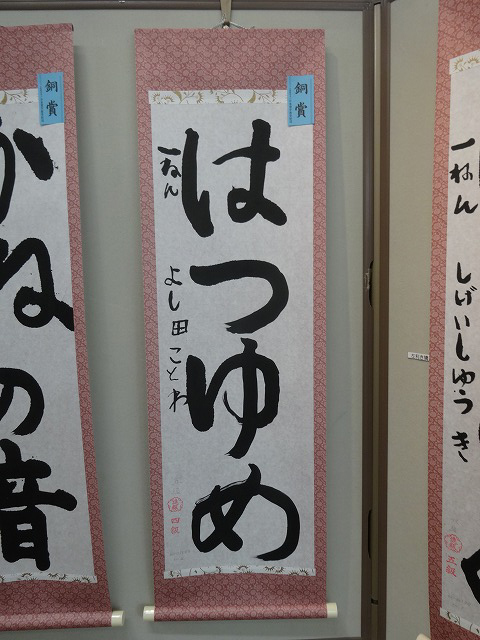 銅賞
はつゆめ
一ねん
よし田ことわ
四級
銅賞
かねの音
一ねん
しげいしゆうき
五級